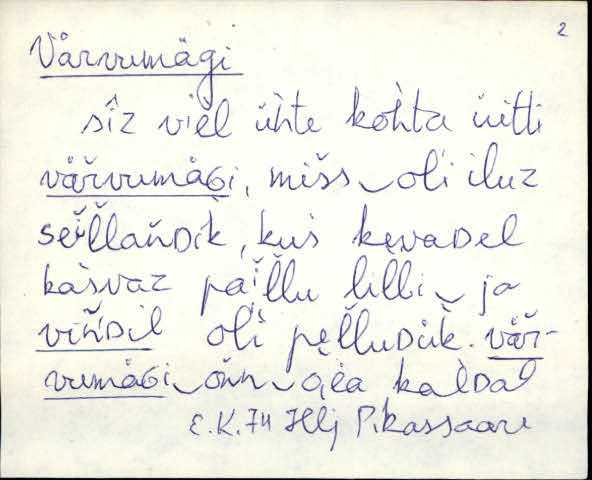 2
Värvumägi
siz viel ühte kohta üitti
värvumäGi, miss‿oli iluz
seĭllanDik, kus kevaDel
kasvaz paĭllu lilli‿ja
vinDil oli pelluDük. vär-
vumäGi‿onn‿ kalDal
E.K. 74 Hlj P. Kassaare